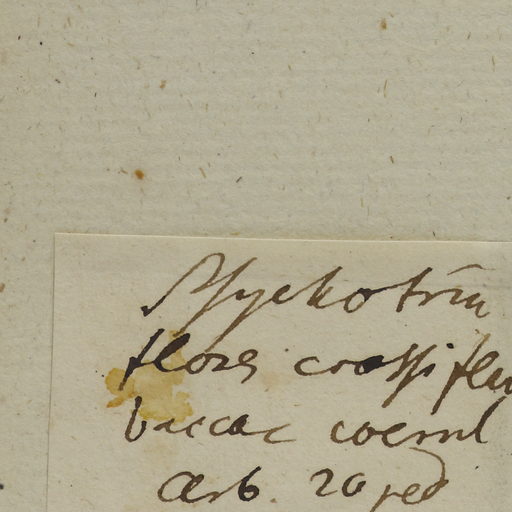 Psychotria
flores crassi flu
baccae coerul
arb. 20 ped